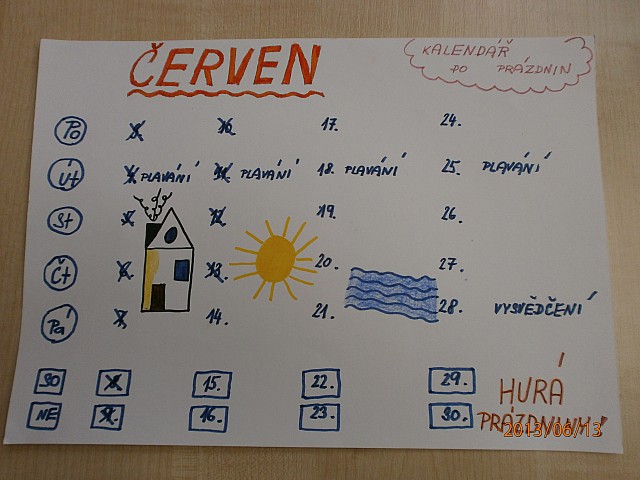 ČERVEN
KALENDÁŘ
PO PRÁZDNIN
Po 3. 10. 17. 24.
Út 4. PLAVÁNÍ 11. PLAVÁNÍ 18. PLAVÁNÍ 25. PLAVÁNÍ
St 5. 12. 19. 26.
Čt 6. 13. 20. 27.
Pá 7. 14. 21. 28. VYSVĚDČENÍ
SO 8. 15. 22. 29.
NE 9. 16. 23. 30.
HURÁ
PRÁZDNINY!
2013/06/13